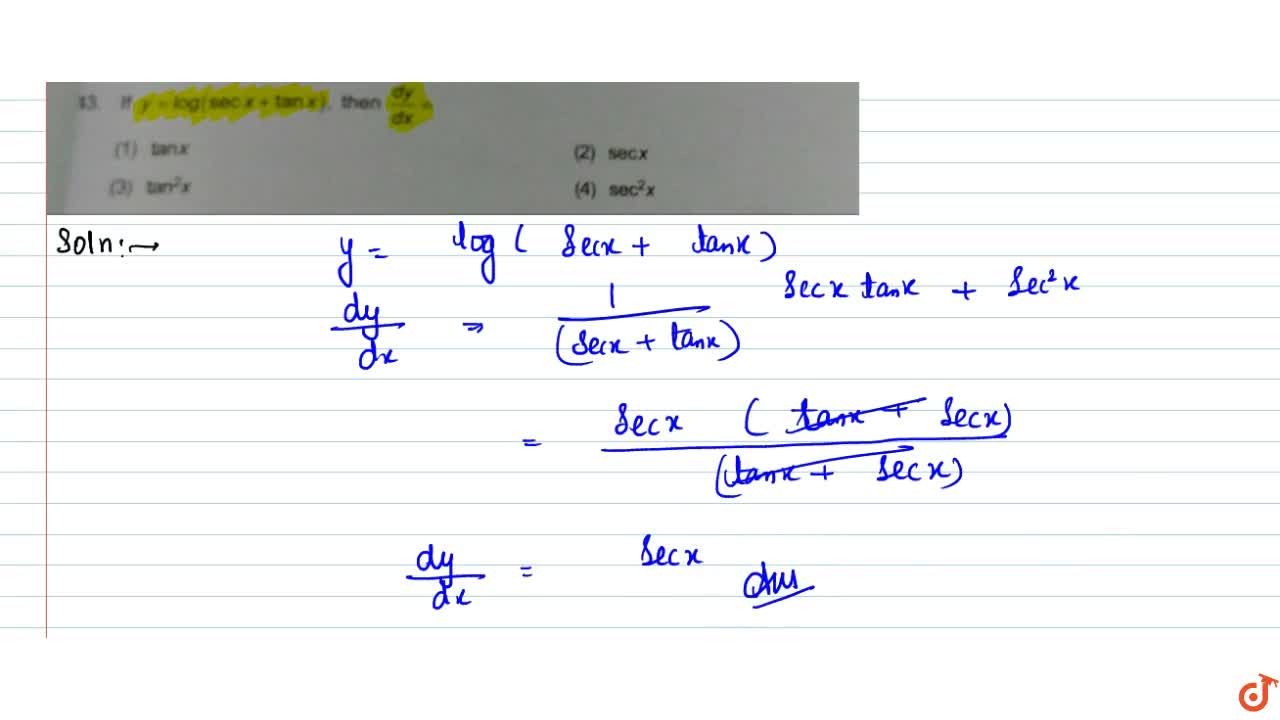 43. If y = log(sec x + tan x), then dy/dx =
(1) tan x (2) sec x
(3) tan²x (4) sec²x
Soln:→
y = log ( Secx + tanx )
dy/dx ⇒ 1/(Secx + tanx) Secx tanx + Sec²x
= Secx ( tanx + Secx)/(tanx + Secx)
dy/dx = Secx Ans